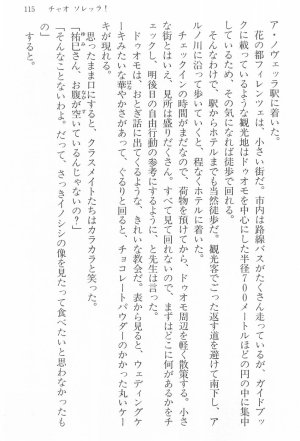 115　チャオ ソレッラ！
ア・ノヴェッラ駅に着いた。
　花の都フィレンツェは、小さい街だ。市内は路線バスがたくさん走っているが、ガイドブッ
クに載っているような観光地はドゥオモを中心にした半径７００メートルほどの円の中に集中
しているため、その気になれば徒歩で回れる。
　そんなわけで、駅からホテルまでも当然徒歩だ。観光客でごった返す道を避けて南下し、ア
ルノ川に沿って歩いていくと、程なくホテルに着いた。
　チェックインの時間がまだなので、荷物を預けてから、ドゥオモ周辺を軽く散策する。小さ
な街とはいえ、見所は盛りだくさん。すべて見て回れないので、まずはどこに何があるかをチ
ェックし、明後日の自由行動の参考にするように、と先生は言った。
　ドゥオモは、おとぎ話に出てくるような、きれいな教会だ。表から見ると、ウェディングケ
ーキみたいな華やかさがあって、ぐるりと回ると、チョコレートパウダーのかかった丸いケー
キが現れる。
　思ったまま口にすると、クラスメイトたちはカラカラと笑った。
「祐巳さん、お腹が空いているんじゃないの？」
「そんなことないわよ。だって、さっきイノシシの像を見たって食べたいと思わなかったも
　すると。